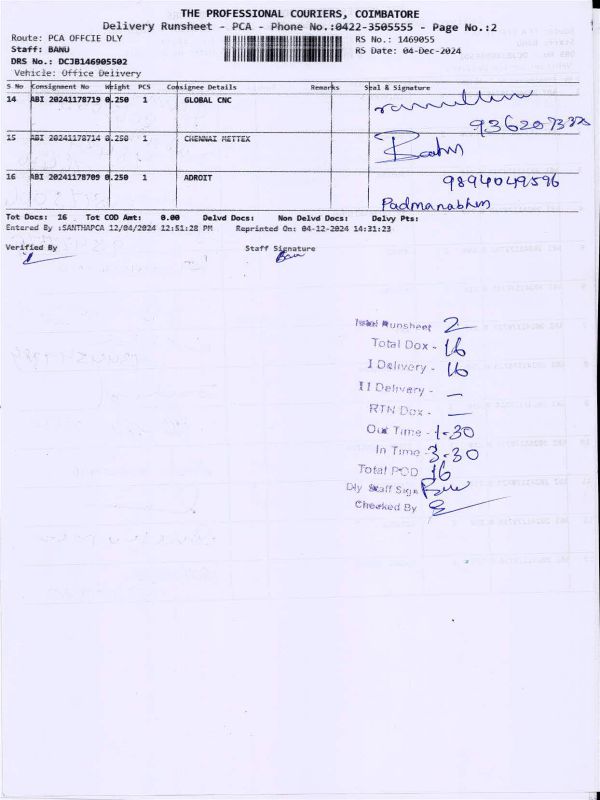 THE PROFESSIONAL COURIERS, COIMBATORE
Delivery Runsheet - PCA - Phone No.:0422-3505555 - Page No.:2
Route: PCA OFFCIE DLY RS No.: 1469055
Staff: BANU RS Date: 04-Dec-2024
DRS No.: DCJB146905502
Vehicle: Office Delivery
S No Consignment No Weight PCS Consignee Details Remarks Seal & Signature
14 ABI 20241178719 0.250 1 GLOBAL CNC
15 ABI 20241178714 0.250 1 CHENNAI METTEX
16 ABI 20241178709 0.250 1 ADROIT 9894049596
Padmanabhan
Tot Docs: 16 Tot COD Amt: 0.00 Delvd Docs: Non Delvd Docs: Delvy Pts:
Entered By :SANTHAPCA 12/04/2024 12:51:28 PM Reprinted On: 04-12-2024 14:31:23
Verified By Staff Signature
Runsheet 2
Total Dox - 16
I Delivery - 16
II Delivery - —
RTN Dox - —
Out Time - 1-30
In Time - 3-30
Total POD 16
Dly Staff Sign
Checked By